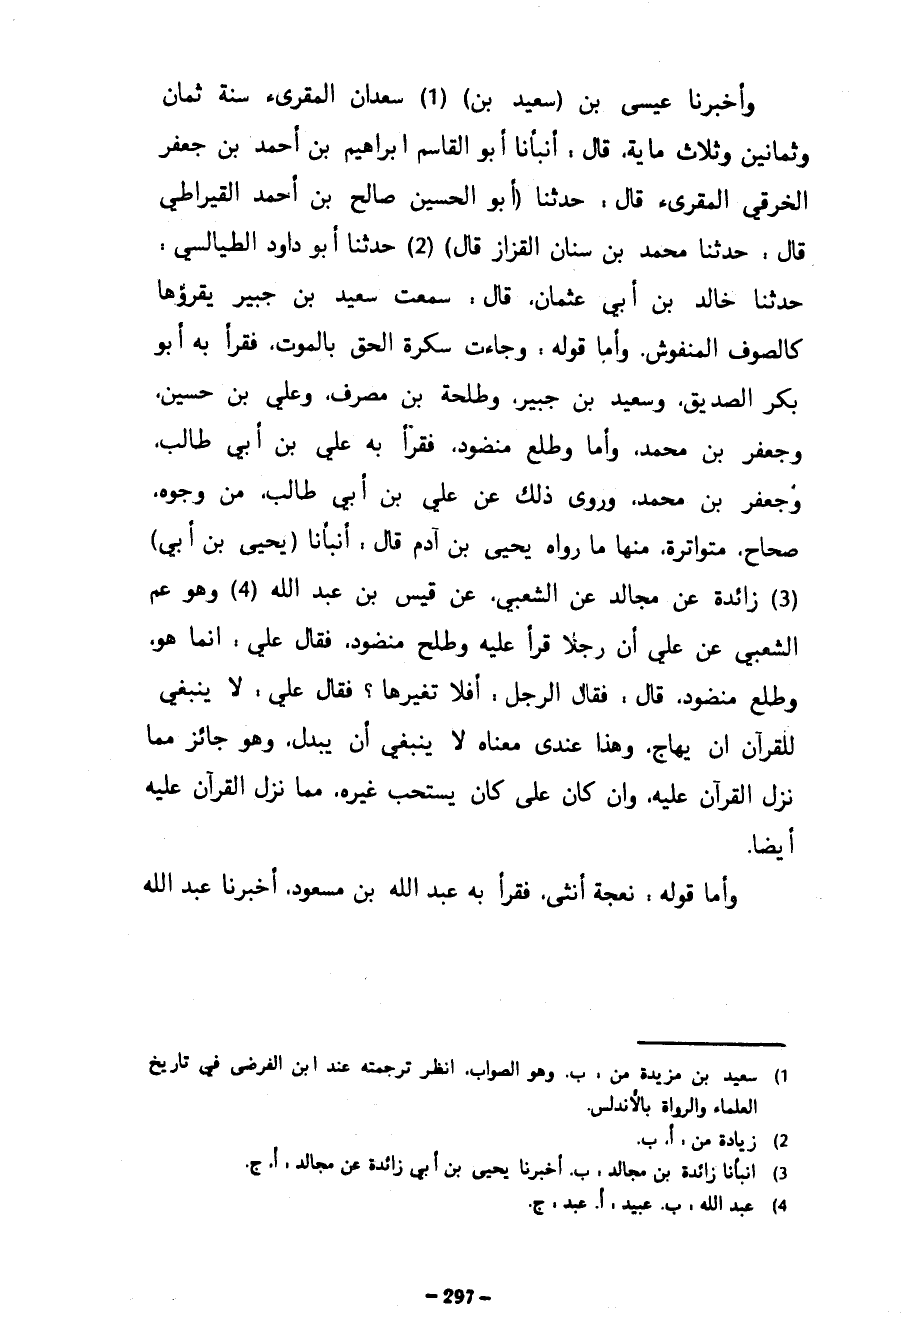 وأخبرنا عيسى بن (سعيد بن) (1) سعدان المقرىء سنة ثمان
وثمانين وثلاث ماية، قال : أنبأنا أبو القاسم ابراهيم بن أحمد بن جعفر
الخرقي المقرىء قال : حدثنا (أبو الحسين صالح بن أحمد القيراطي
قال : حدثنا محمد بن سنان القزاز قال) (2) حدثنا أبو داود الطيالسي :
حدثنا خالد بن أبي عثمان، قال : سمعت سعيد بن جبير يقرؤها
كالصوف المنفوش. وأما قوله : وجاءت سكرة الحق بالموت، فقرأ به أبو
بكر الصديق، وسعيد بن جبير، وطلحة بن مصرف، وعلي بن حسين،
وجعفر بن محمد، وأما وطلع منضود، فقرأ به علي بن أبي طالب،
وجعفر بن محمد، وروى ذلك عن علي بن أبي طالب، من وجوه،
صحاح، متواترة، منها ما رواه يحيى بن آدم قال : أنبأنا (يحيى بن أبي)
(3) زائدة عن مجالد عن الشعبي، عن قيس بن عبد الله (4) وهو عم
الشعبي عن علي أن رجلا قرأ عليه وطلح منضود، فقال علي : انما هو،
وطلع منضود، قال : فقال الرجل : أفلا تغيرها ؟ فقال علي : لا ينبغي
للقرآن ان يهاج، وهذا عندى معناه لا ينبغي أن يبدل، وهو جائز مما
نزل القرآن عليه، وان كان على كان يستحب غيره، مما نزل القرآن عليه
أيضا.
وأما قوله : نعجة أنثى، فقرأ به عبد الله بن مسعود، أخبرنا عبد الله
1) سعيد بن مزيدة من : ب. وهو الصواب، انظر ترجمته عند ابن الفرضى في تاريخ
العلماء والرواة بالأندلس.
2) زيادة من : أ، ب.
3) انبأنا زائدة بن مجالد : ب. أخبرنا يحيى بن أبي زائدة عن مجالد : أ، ج.
4) عبد الله : ب. عبيد : أ. عبد : ج.
- 297 -